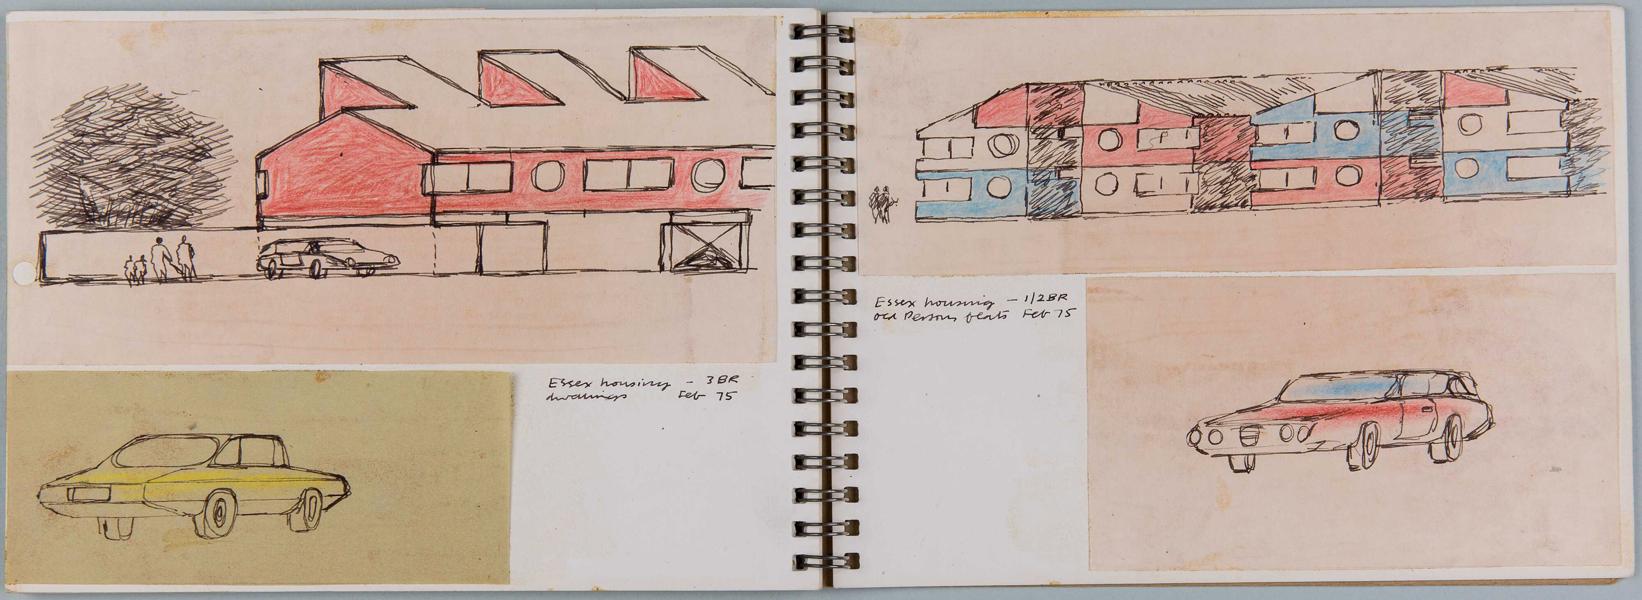 Essex housing - 3BR
dwellings Feb 75
Essex housing - 1/2BR
old Persons flats Feb 75